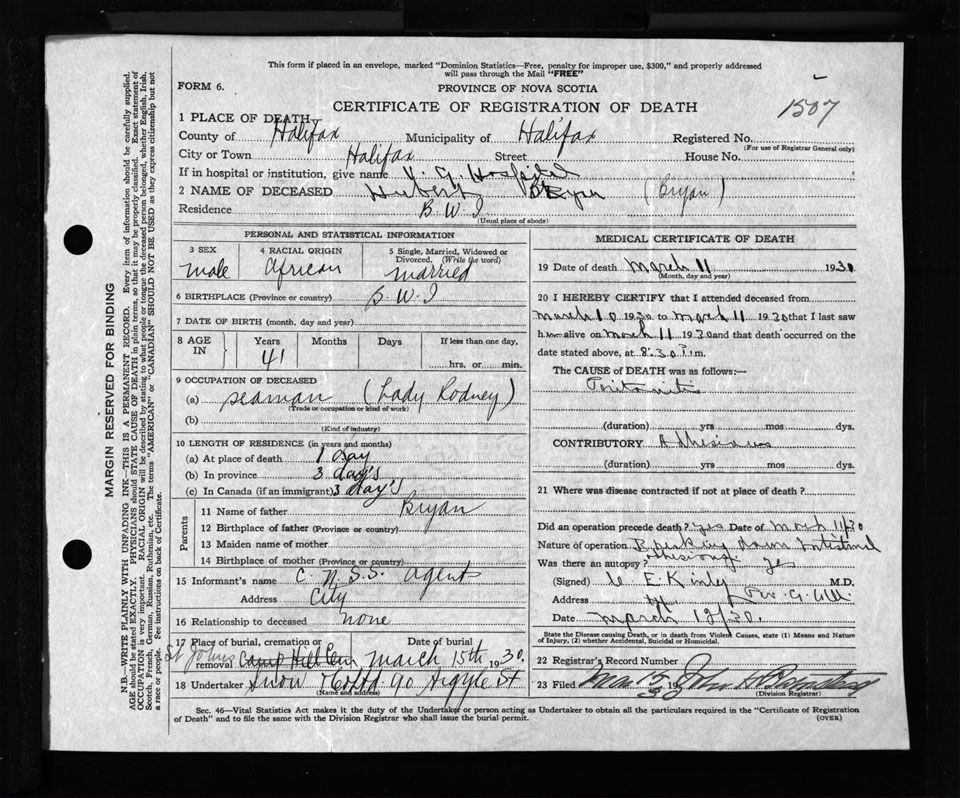 This form if placed in an envelope, marked "Dominion Statistics—Free, penalty for improper use, $300," and properly addressed
will pass through the Mail "FREE"
FORM 6.
PROVINCE OF NOVA SCOTIA
CERTIFICATE OF REGISTRATION OF DEATH
1507
1 PLACE OF DEATH
County of Halifax Municipality of Halifax Registered No.
(For use of Registrar General only)
City or Town Halifax Street House No.
If in hospital or institution, give name V. G. Hospital
2 NAME OF DECEASED Hubert (Bryan)
Residence B. W. I
(Usual place of abode)
PERSONAL AND STATISTICAL INFORMATION
3 SEX male
4 RACIAL ORIGIN African
5 Single, Married, Widowed or Divorced. (Write the word) married
6 BIRTHPLACE (Province or country) B. W. I
7 DATE OF BIRTH (month, day and year)
8 AGE IN Years Months Days If less than one day,
41 hrs. or min.
9 OCCUPATION OF DECEASED
(a) seaman (Lady Rodney)
(Trade or occupation or kind of work)
(b)
(Kind of industry)
10 LENGTH OF RESIDENCE (in years and months)
(a) At place of death 1 day
(b) In province 3 day's
(c) In Canada (if an immigrant) 3 day's
Parents
11 Name of father Bryan
12 Birthplace of father (Province or country)
13 Maiden name of mother
14 Birthplace of mother (Province or country)
15 Informant's name C. N. S. S. agent
Address City
16 Relationship to deceased none
17 Place of burial, cremation or removal St Johns Camp Hill Cem
Date of burial March 15th 1930.
18 Undertaker Snow & Co Ltd. 90 Argyle St
(Name and address)
MEDICAL CERTIFICATE OF DEATH
19 Date of death march 11 1930
(Month, day and year)
20 I HEREBY CERTIFY that I attended deceased from
march 10 1930 to march 11 1930 that I last saw
him alive on march 11 1930 and that death occurred on the
date stated above, at 8.30 P.m.
The CAUSE of DEATH was as follows:—
Peritonitis
(duration) yrs mos dys.
CONTRIBUTORY Adhesions
(duration) yrs mos dys.
21 Where was disease contracted if not at place of death?
Did an operation precede death? yes Date of March 11/30
Nature of operation Breaking down Intestinal
adhesions
Was there an autopsy? yes
(Signed) E. Kinley M.D.
Address
Date march 12/30.
State the Disease causing Death, or in death from Violent Causes, state (1) Means and Nature
of Injury, (2) whether Accidental, Suicidal or Homicidal.
22 Registrar's Record Number
23 Filed Mar 15 19 30 John H
(Division Registrar)
Sec. 46—Vital Statistics Act makes it the duty of the Undertaker or person acting as Undertaker to obtain all the particulars required in the "Certificate of Registration
of Death" and to file the same with the Division Registrar who shall issue the burial permit.
(OVER)
MARGIN RESERVED FOR BINDING
N.B.—WRITE PLAINLY WITH UNFADING INK—THIS IS A PERMANENT RECORD. Every item of information should be carefully supplied.
AGE should be stated EXACTLY. PHYSICIANS should STATE CAUSE OF DEATH in plain terms, so that it may be properly classified. Exact statement of
OCCUPATION is very important. RACIAL ORIGIN will be described by stating to what people or tongue the deceased person belonged, whether English, Irish,
Scotch, French, German, Russian, Ruthenian, etc. The terms "AMERICAN" or "CANADIAN" SHOULD NOT BE USED as they express citizenship but not
a race or people. See instructions on back of Certificate.